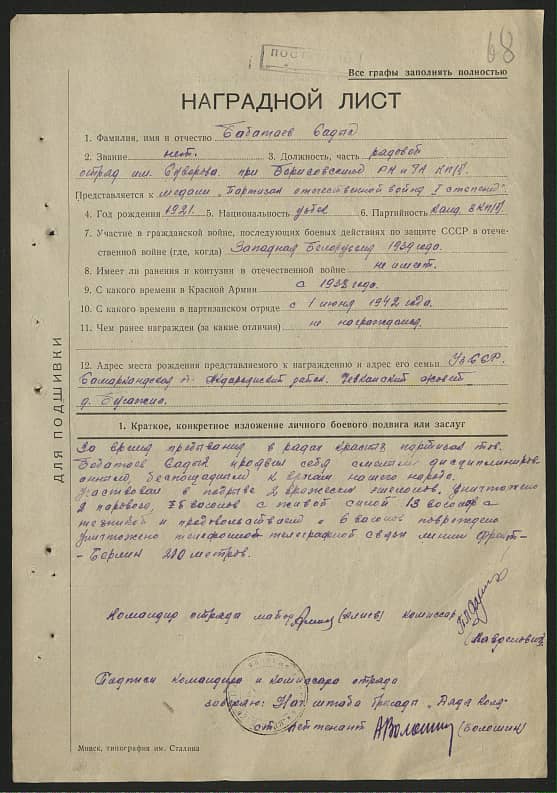 68
Все графы заполнять полностью
НАГРАДНОЙ ЛИСТ
1. Фамилия, имя и отчество Бабатаев Садык
2. Звание нет. 3. Должность, часть рядовой
отряд им. Суворова при Борисовском РК и ГК КП/б/.
Представляется к медали "Партизан отечественной войны I степени".
4. Год рождения 1921. 5. Национальность узбек 6. Партийность канд. ВКП/б/
7. Участие в гражданской войне, последующих боевых действиях по защите СССР в отече-
ственной войне (где, когда) Западная Белоруссия 1939 года.
8. Имеет ли ранения и контузии в отечественной войне не имеет.
9. С какого времени в Красной Армии с 1938 года.
10. С какого времени в партизанском отряде с 1 июня 1942 года.
11. Чем ранее награжден (за какие отличия) не награждался.
12. Адрес места рождения представляемого к награждению и адрес его семьи УзССР.
Самаркандская район.
д.
ДЛЯ ПОДШИВКИ
1. Краткое, конкретное изложение личного боевого подвига или заслуг
За время пребывания в рядах красных партизан тов.
Бабатаев Садык проявил себя смелым дисциплиниров-
анным, беспощадным к врагам нашего народа.
Участвовал в подрыве 2 вражеских эшелонов. Уничтожено
2 паровоза, 75 вагонов с живой силой 13 вагонов с
техникой и продовольствием и 6 вагонов повреждено
Уничтожено телефонной телеграфной связи линии Фронт-
- Берлин 210 метров.
Командир отряда майор (Алиев) Комиссар
Подписи командира и комиссара отряда
заверяю: Нач. штаба бригады "Дяди Коли"
ст. лейтенант А Волошин (Волошин)
Минск, типография им. Сталина